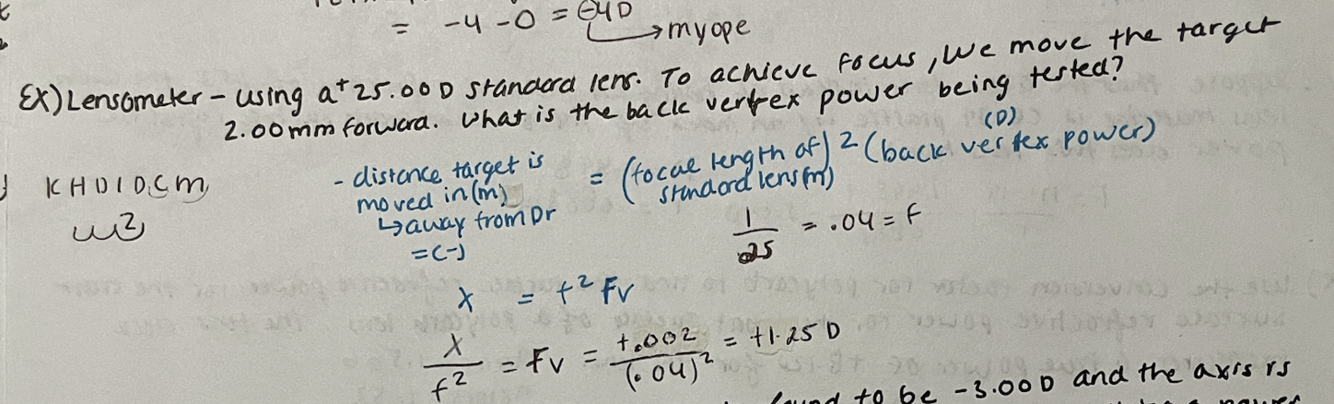 = -4 - 0 = -4D
↳ myope
EX) Lensometer - using a +25.00 D standard lens. To achieve focus, we move the target
2.00mm forward. What is the back vertex power being tested?
KHDIDCM
- distance target is
moved in (m)
↳ away from Dr
= (-)
= (focal length of
standard lens (m))² (back vertex power)
(D)
1/25 = .04 = f
x = f² Fv
x/f² = Fv = +.002/(.04)² = +1.25 D
found to be -3.00 D and the axis is